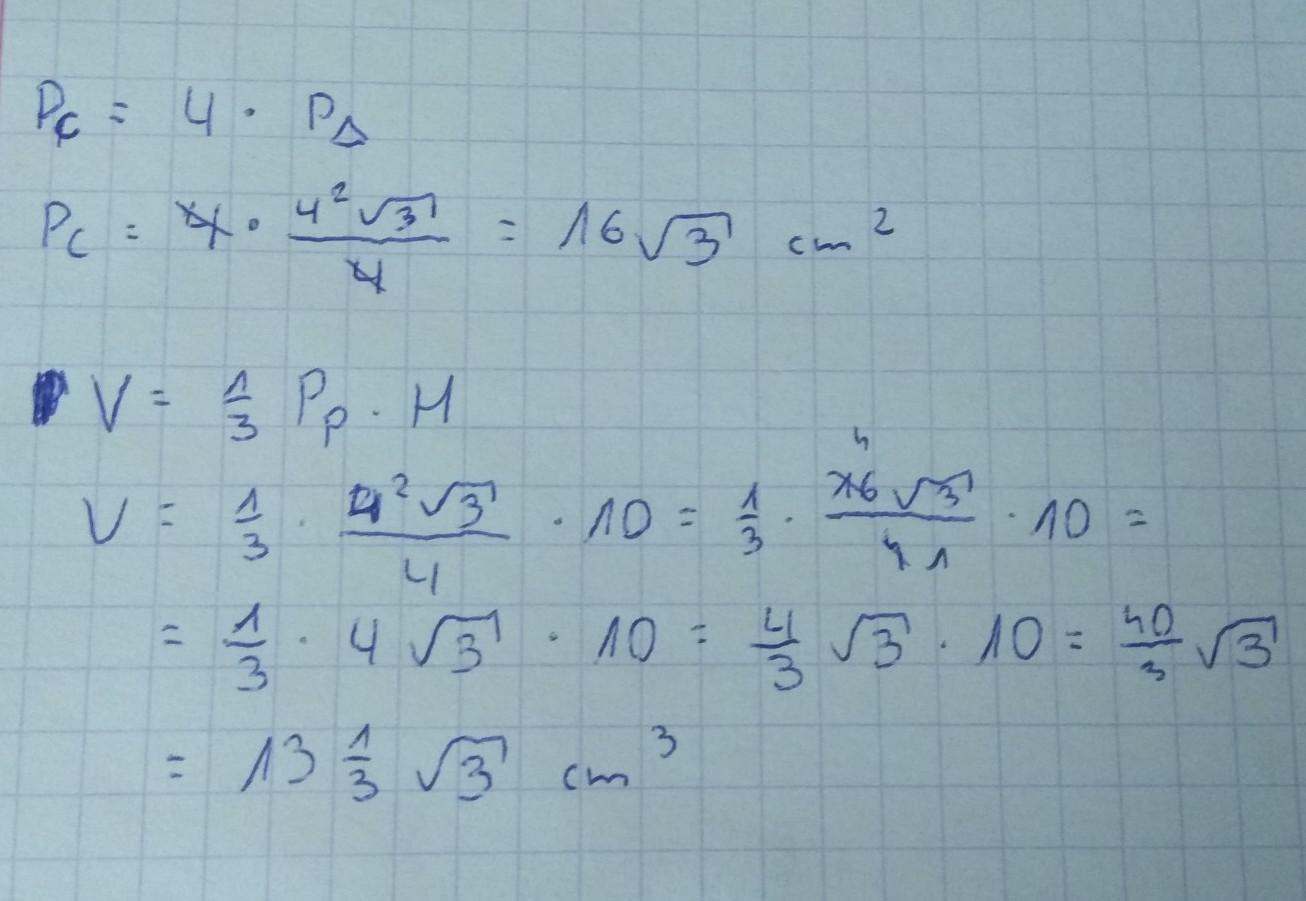 P_c = 4 · P_Δ
P_c = 4 · 4²√3 / 4 = 16√3 cm²
V = 1/3 P_p · H
V = 1/3 · 4²√3 / 4 · 10 = 1/3 · 16√3 / 4 · 10 =
= 1/3 · 4√3 · 10 = 4/3 √3 · 10 = 40/3 √3
= 13 1/3 √3 cm³